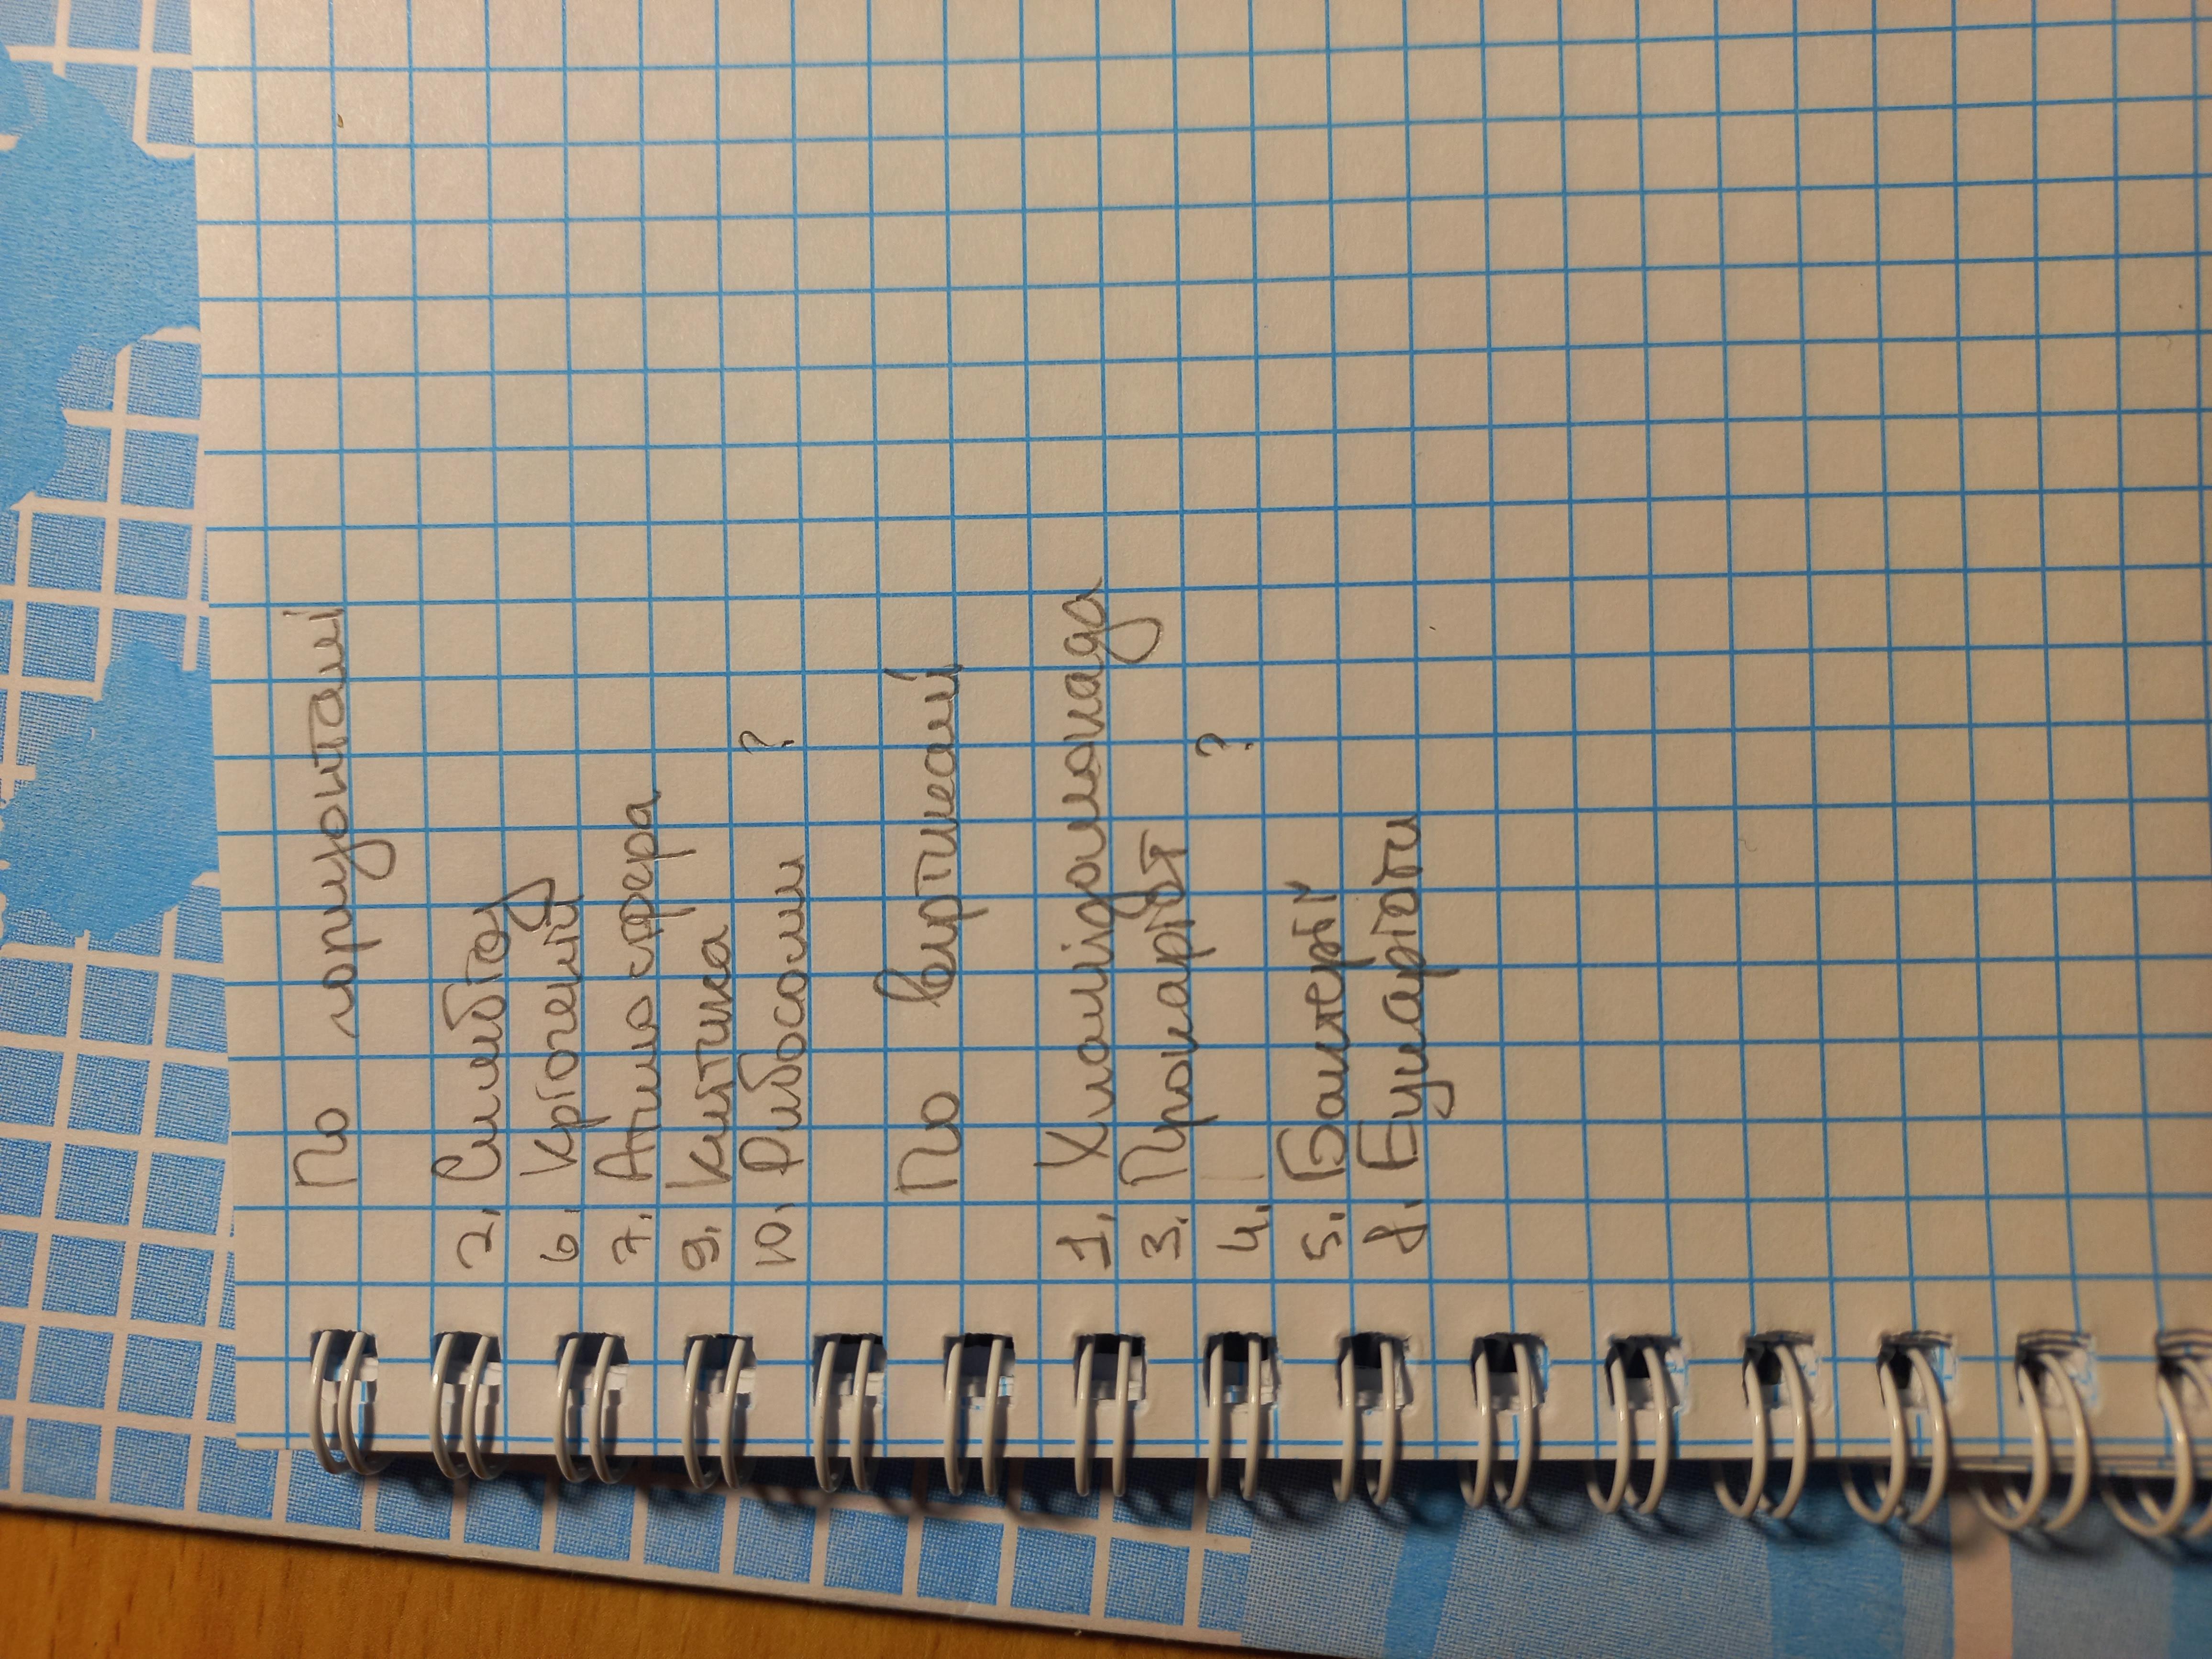 По горизонталі
2. Симбіоз
6. Кріогеній
7. Атмосфера
9. Клітина
10. Рибосоми ?
По вертикалі
1. Хламідомонада
3. Прокаріот
4. ?
5. Бактерії
8. Еукаріоти